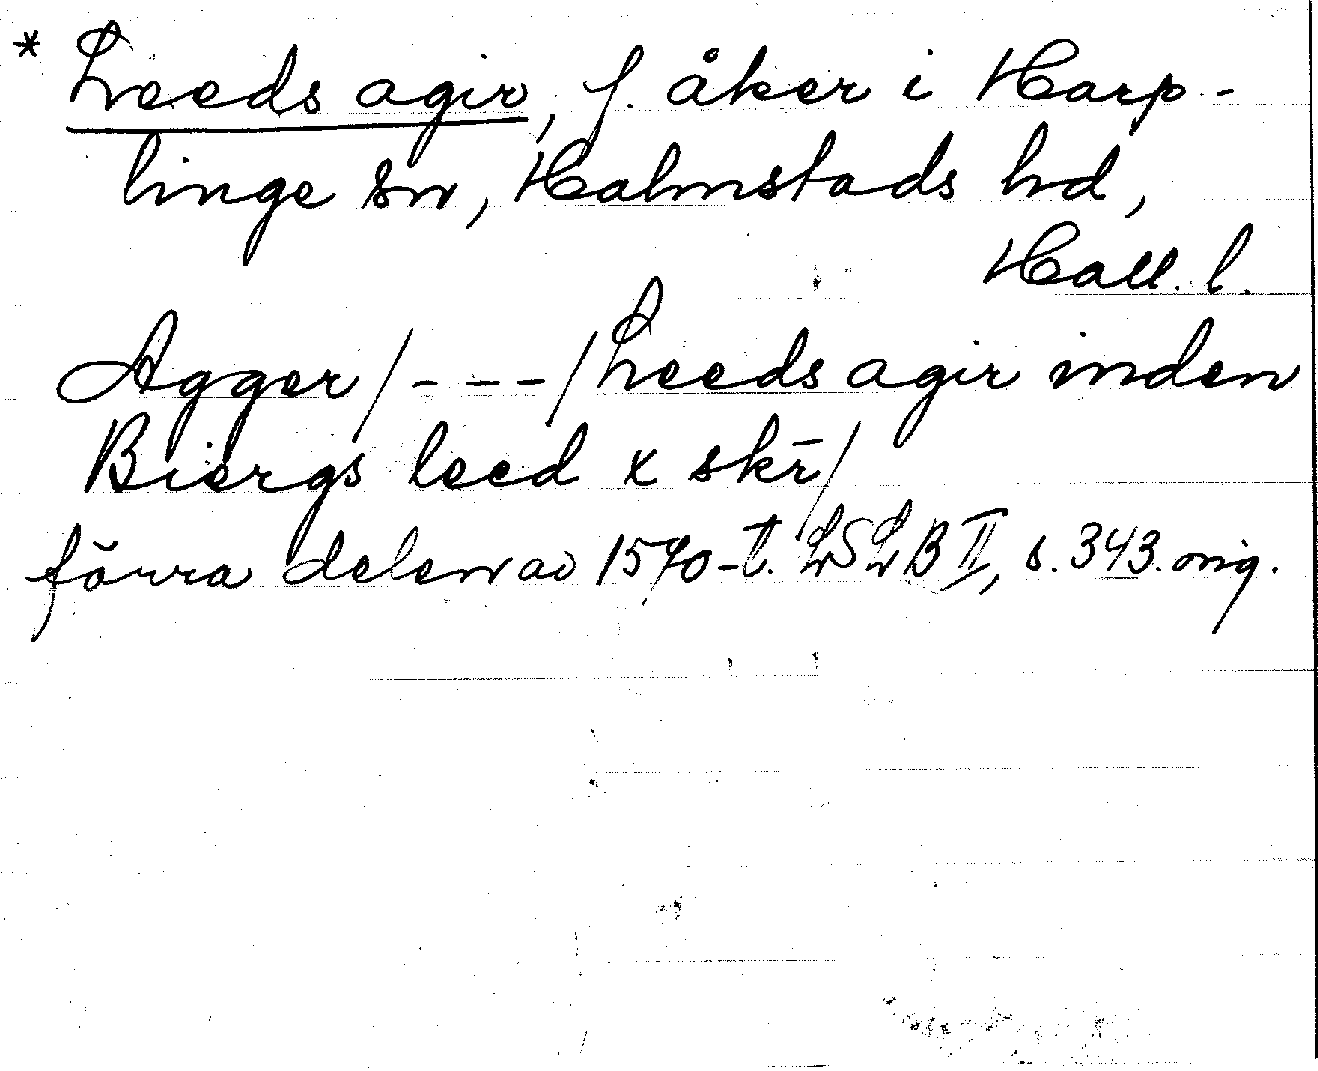 * Leeds agir, f. åker i Harp-
linge sn, Halmstads hd,
Hall. l.
Agger / - - - / Leeds agir inden
Biergs leed x skr̄ /
förra delen av 1570-t. LSLB II, s. 343. orig.